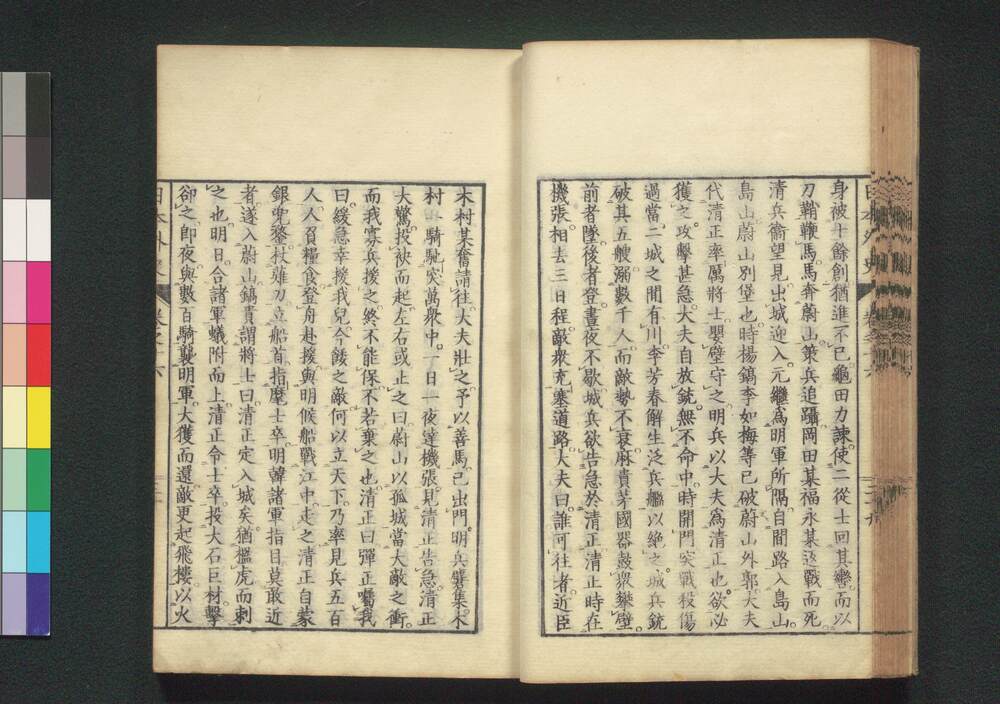 身被十餘創猶進不已龜田力諫使二從士回其轡而以
刀鞘鞭馬馬奔蔚山策兵追躡岡田某福永某返戰而死
清兵衞望見出城迎入元繼爲明軍所隔自間路入島山
島山蔚山別堡也時楊鎬李如梅等已破蔚山外郭大夫
代清正率厲將士嬰壁守之明兵以大夫爲清正也欲必
獲之攻擊甚急大夫自放銃無不命中時開門突戰殺傷
過當二城之間有川李芳春解生泛兵艦以絶之城兵銃
破其五艘溺數千人而敵勢不衰麻貴茅國器鼓衆攀壁
前者墜後者登晝夜不歇城兵欲告急於清正清正時在
機張相去三日程敵衆充塞道路大夫曰誰可往者近臣
木村某奮請往大夫壯之予以善馬已出門明兵群集木
村騎馳突萬衆中一日一夜達機張見清正告急清正
大驚投袂而起左右或止之曰蔚山以孤城當大敵之衝
而我寡兵援之終不能保不若棄之也清正曰彈正囑我
曰緩急幸援我兒今餒之敵何以立天下乃率見兵五百
人人負糧食登舟赴援與明候船戰江中走之清正自蒙
銀兜鍪杖薙刀立船首指麾士卒明韓諸軍指目莫敢近
者遂入蔚山鎬貴謂將士曰清正定入城矣猶檻虎而刺
之也明日合諸軍蟻附而上清正令士卒投大石巨材擊
卻之卽夜與數百騎襲明軍大獲而還敵更起飛樓以火
日本外史
卷之十六